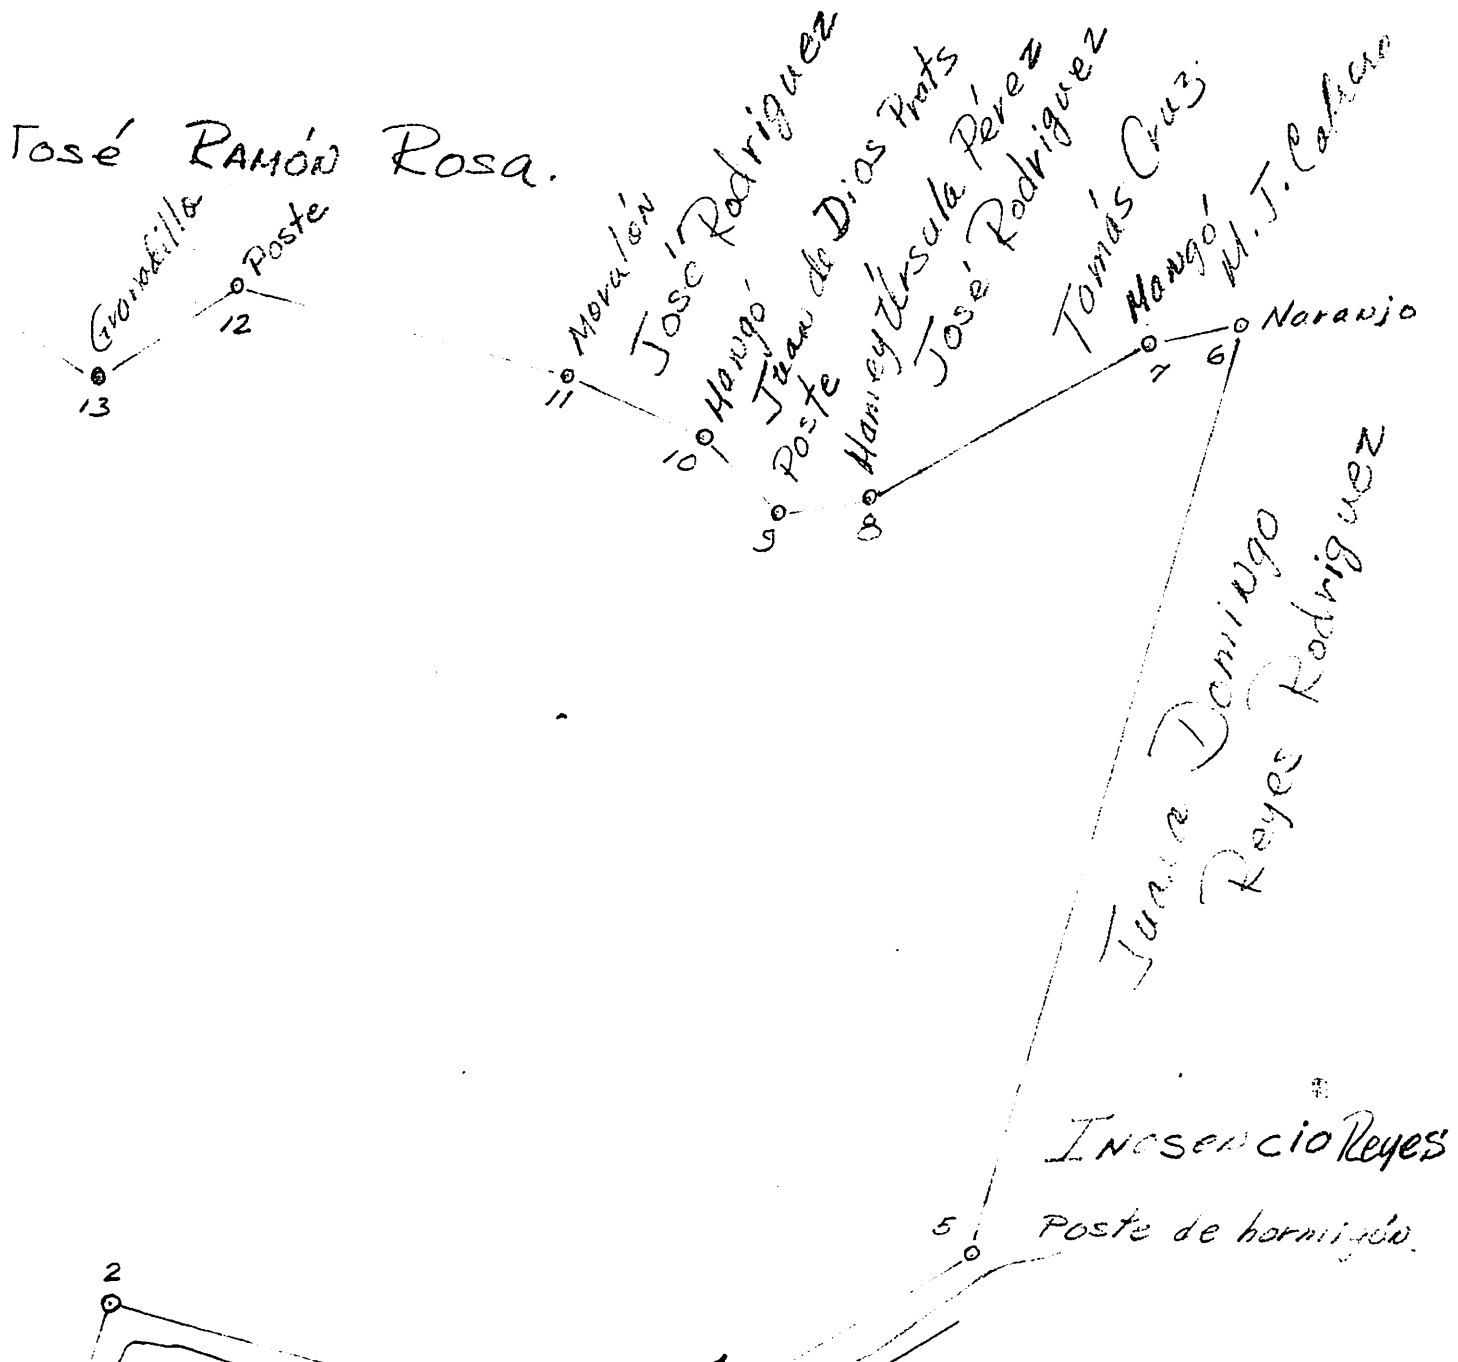 José RAMÓN Rosa.
Granadilla
Poste
12
13
Moralón
11
José Rodriguez
Mangó
10
Juan de Dios Prats
Poste
9
Mamey
8
Úrsula Pérez
José Rodriguez
Tomás Cruz
Mangó
7
M. J.
6
Naranjo
Juan Domingo
Reyes Rodriguez
Inosencio Reyes
5
Poste de hormigón.
2